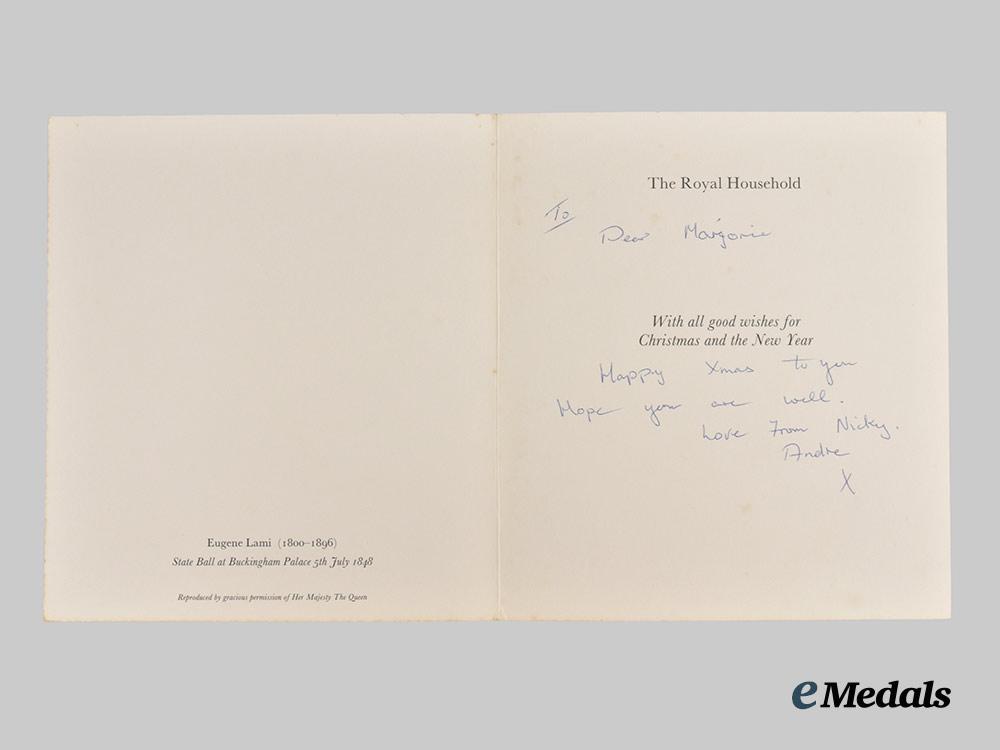 Eugene Lami (1800–1896)
State Ball at Buckingham Palace 5th July 1848
Reproduced by gracious permission of Her Majesty The Queen
The Royal Household
To
Dear Marjorie
With all good wishes for
Christmas and the New Year
Happy Xmas to you
Hope you are well.
Love From Nicky.
Andre
X
eMedals